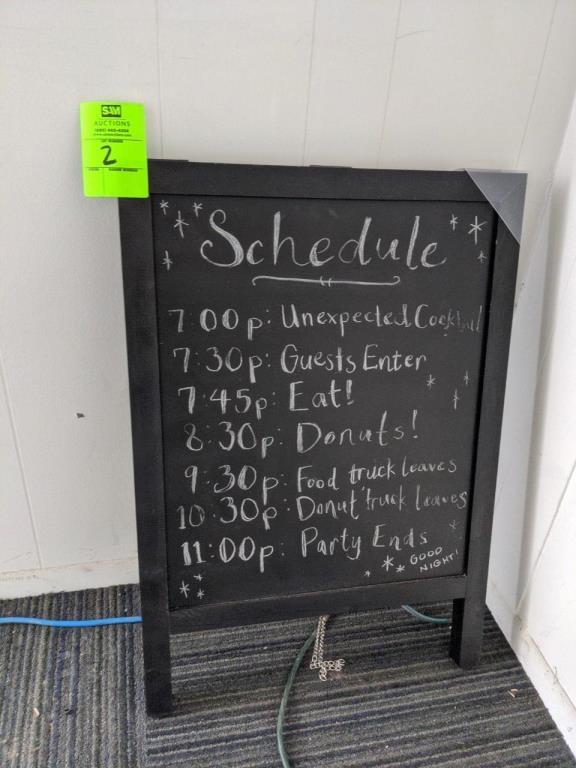 SAM
AUCTIONS
LOT NUMBER
2
Schedule
7:00p: Unexpected Cocktail
7:30p: Guests Enter
7:45p: Eat!
8:30p: Donuts!
9:30p: Food truck leaves
10:30p: Donut truck leaves
11:00p: Party Ends
GOOD
NIGHT!